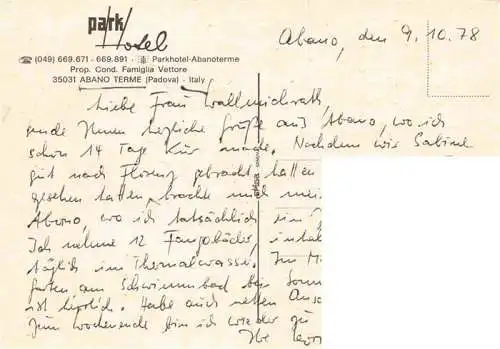 park
Hotel
(049) 669.671 - 669.891 - Parkhotel-Abanoterme
Prop. Cond. Famiglia Vettore
35031 ABANO TERME (Padova) - Italy
Abano, den 9.10.78
Liebe Frau Wallmichrath,
sende Ihnen herzliche Grüße aus Abano, wo ich
schon 14 Tage Kur mache. Nachdem wir Sabine
gut nach Florenz gebracht hatten
gesehen hatten, brachte mich
Abano, wo ich tatsächlich ein
Ich nehme 12 Fangobäder,
täglich im Thermalwasser. Im
am Schwimmbad bei
ist herrlich. Habe auch netten
Zum Wochenende bin ich wieder zu
Ihre